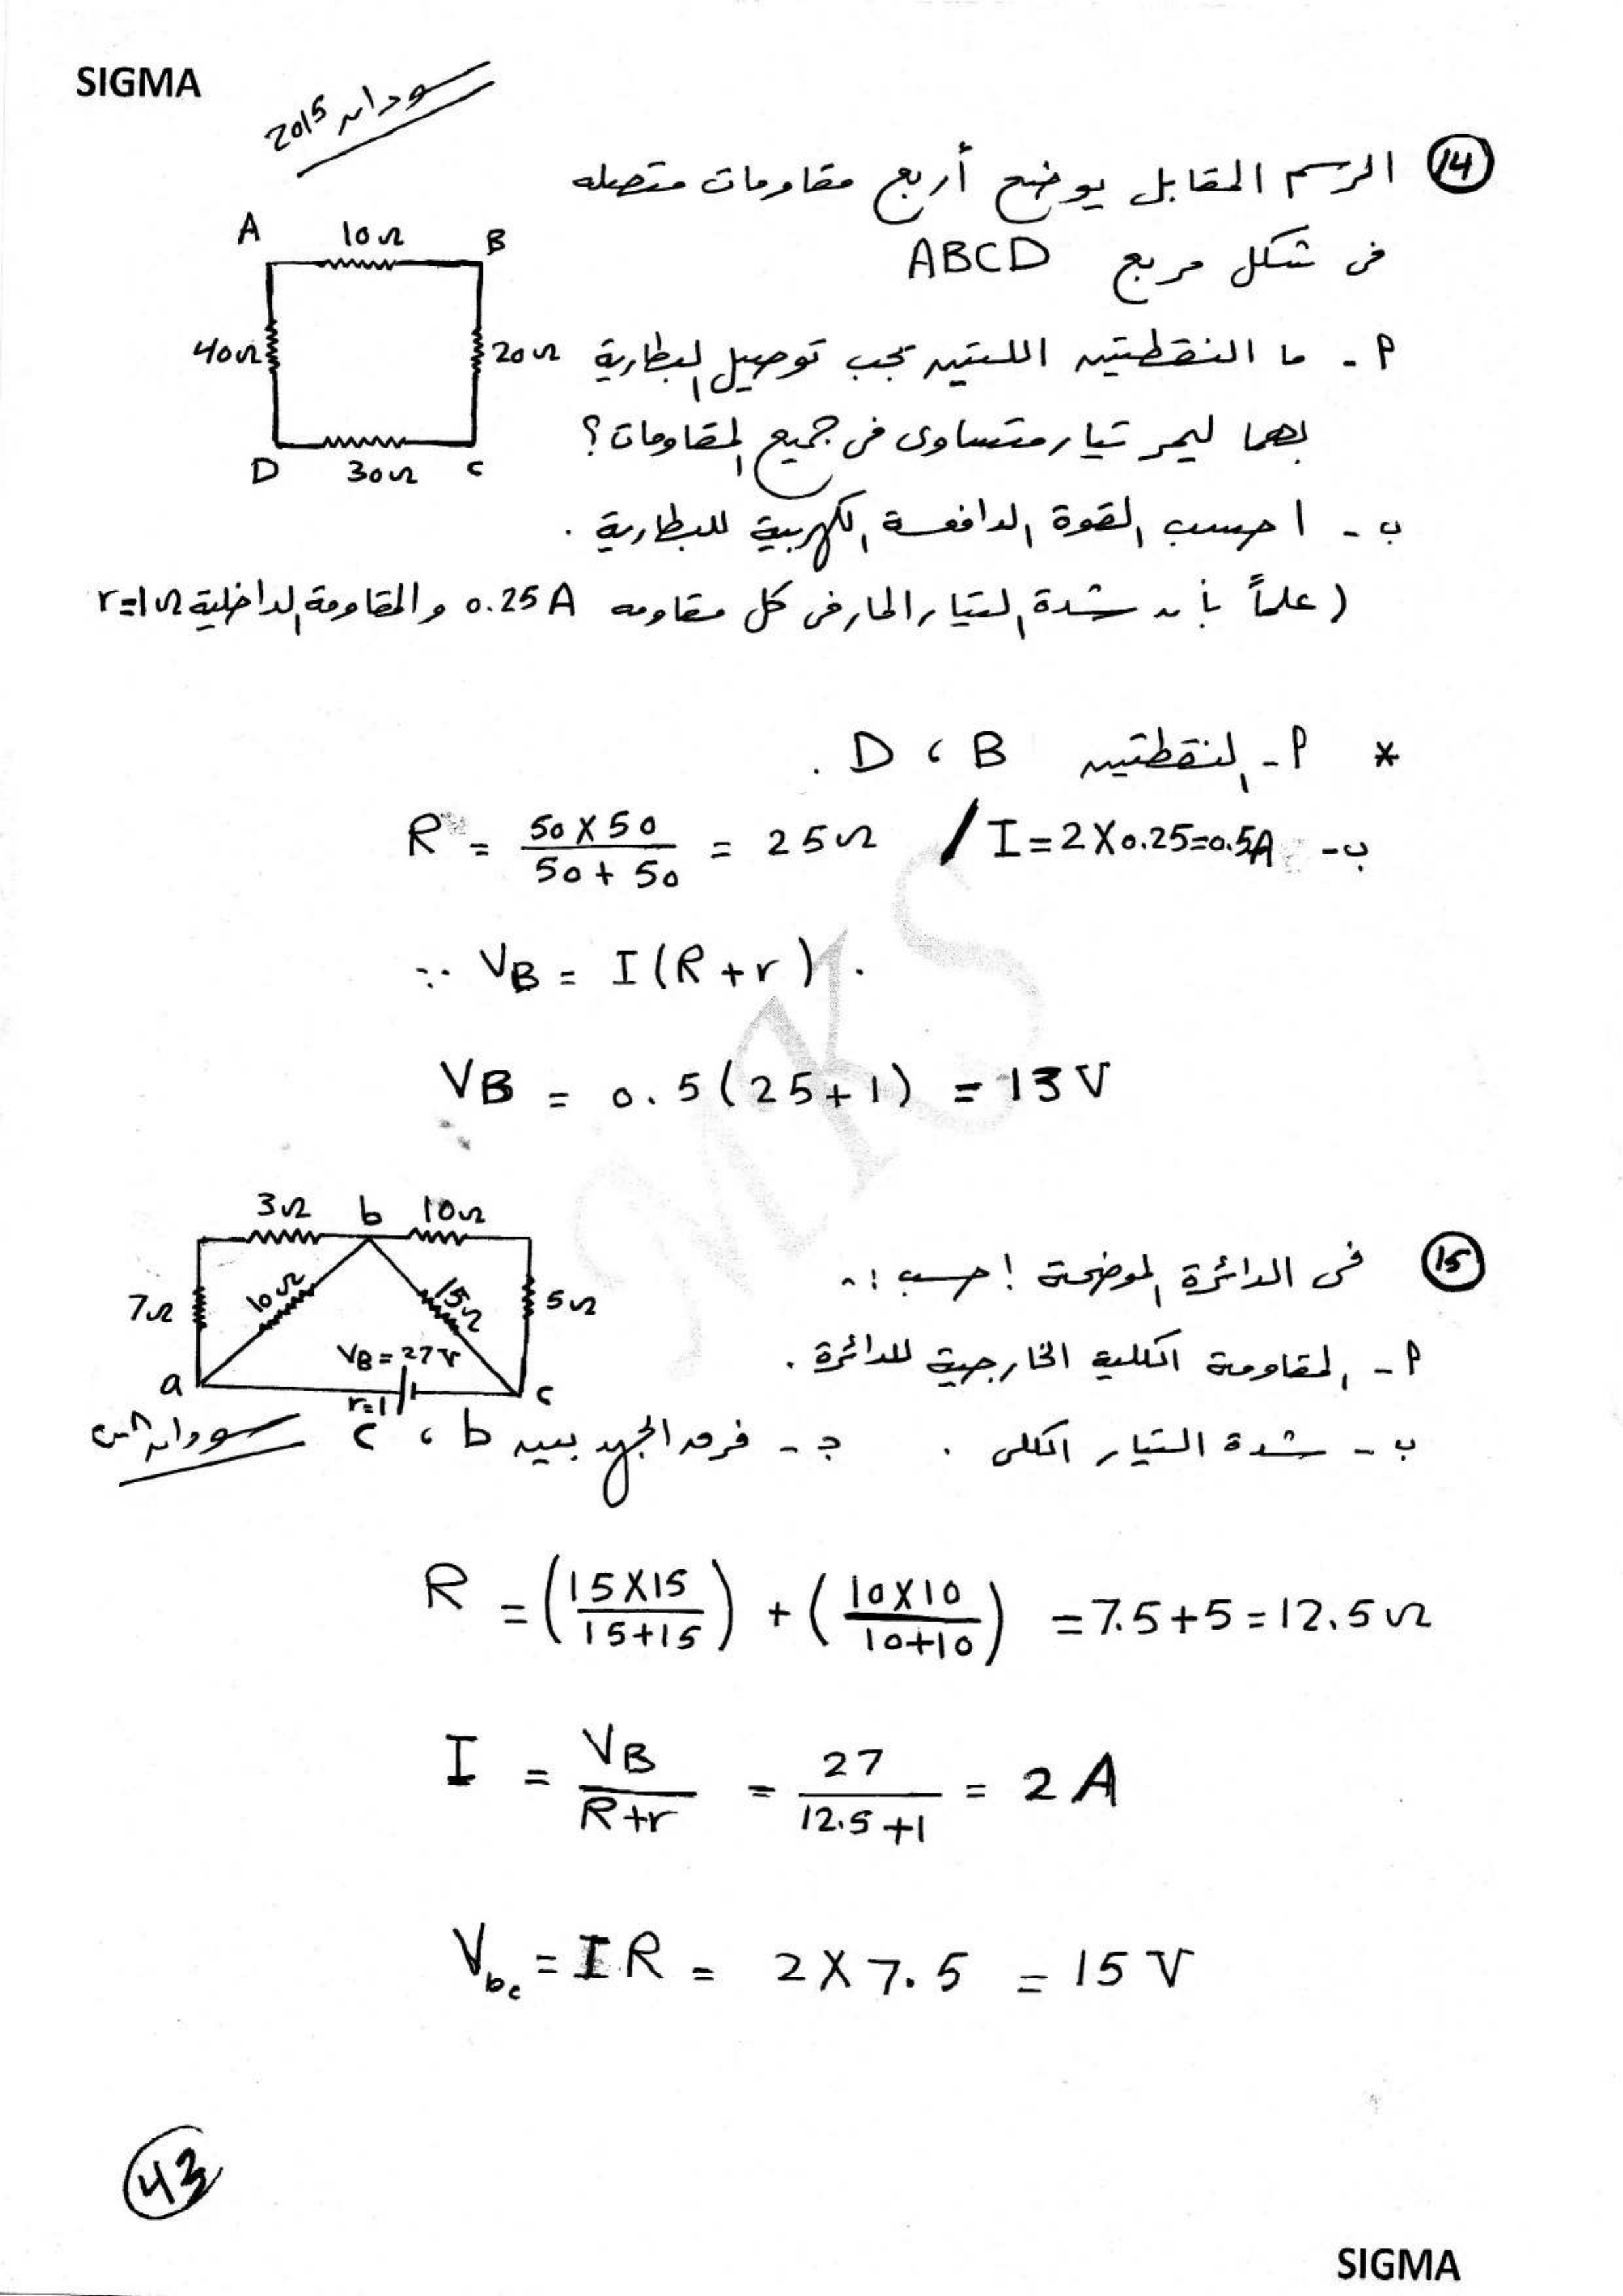 SIGMA
سودان 2015
14 الرسم المقابل يوضح أربع مقاومات متصله
فى شكل مربع ABCD
A 10Ω B
40Ω 20Ω
D 30Ω C
أ - ما النقطتين اللتين يجب توصيل البطارية
بهما ليمر تيار متساوى فى جميع المقاومات؟
ب - احسب القوة الدافعة الكهربية للبطارية .
(علماً بأن شدة التيار المار فى كل مقاومه 0.25 A والمقاومة الداخلية r=1Ω
* أ - النقطتين B ، D .
ب - I = 2 X 0.25 = 0.5A / R = 50 X 50 / 50 + 50 = 25Ω
∵ VB = I (R + r) .
VB = 0.5 (25 + 1) = 13 V
15 فى الدائرة الموضحة احسب :-
3Ω b 10Ω
7Ω 10Ω 15Ω 5Ω
VB = 27 V
a r=1 c
أ - المقاومة الكلية الخارجية للدائرة .
ب - شدة التيار الكلى . جـ - فرق الجهد بين b ، c
سودان
R = (15 X 15 / 15 + 15) + (10 X 10 / 10 + 10) = 7.5 + 5 = 12.5 Ω
I = VB / R + r = 27 / 12.5 + 1 = 2 A
Vbc = I R = 2 X 7.5 = 15 V
MKS
43
SIGMA